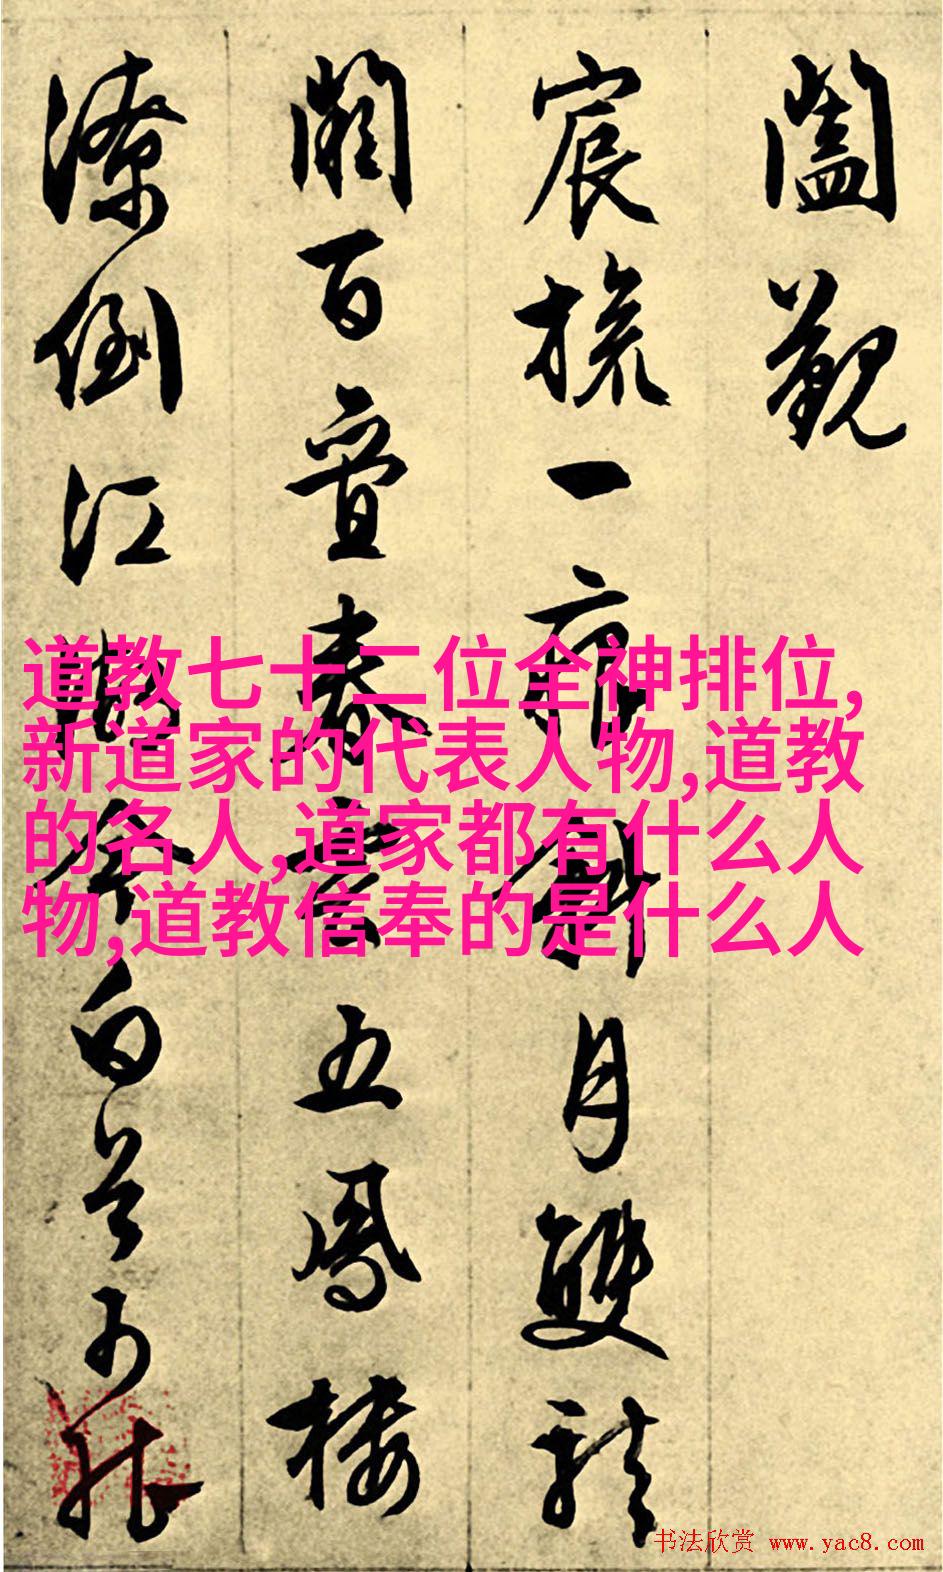 闔觀
宸旒一痕斜月雙龍
闕百疊春雲五鳳樓
潦倒江湖今白首可能
道教七十二位全神排位,
新道家的代表人物,道教
的名人,道家都有什么人
物,道教信奉的是什么人
书法欣赏 www.yac8.com